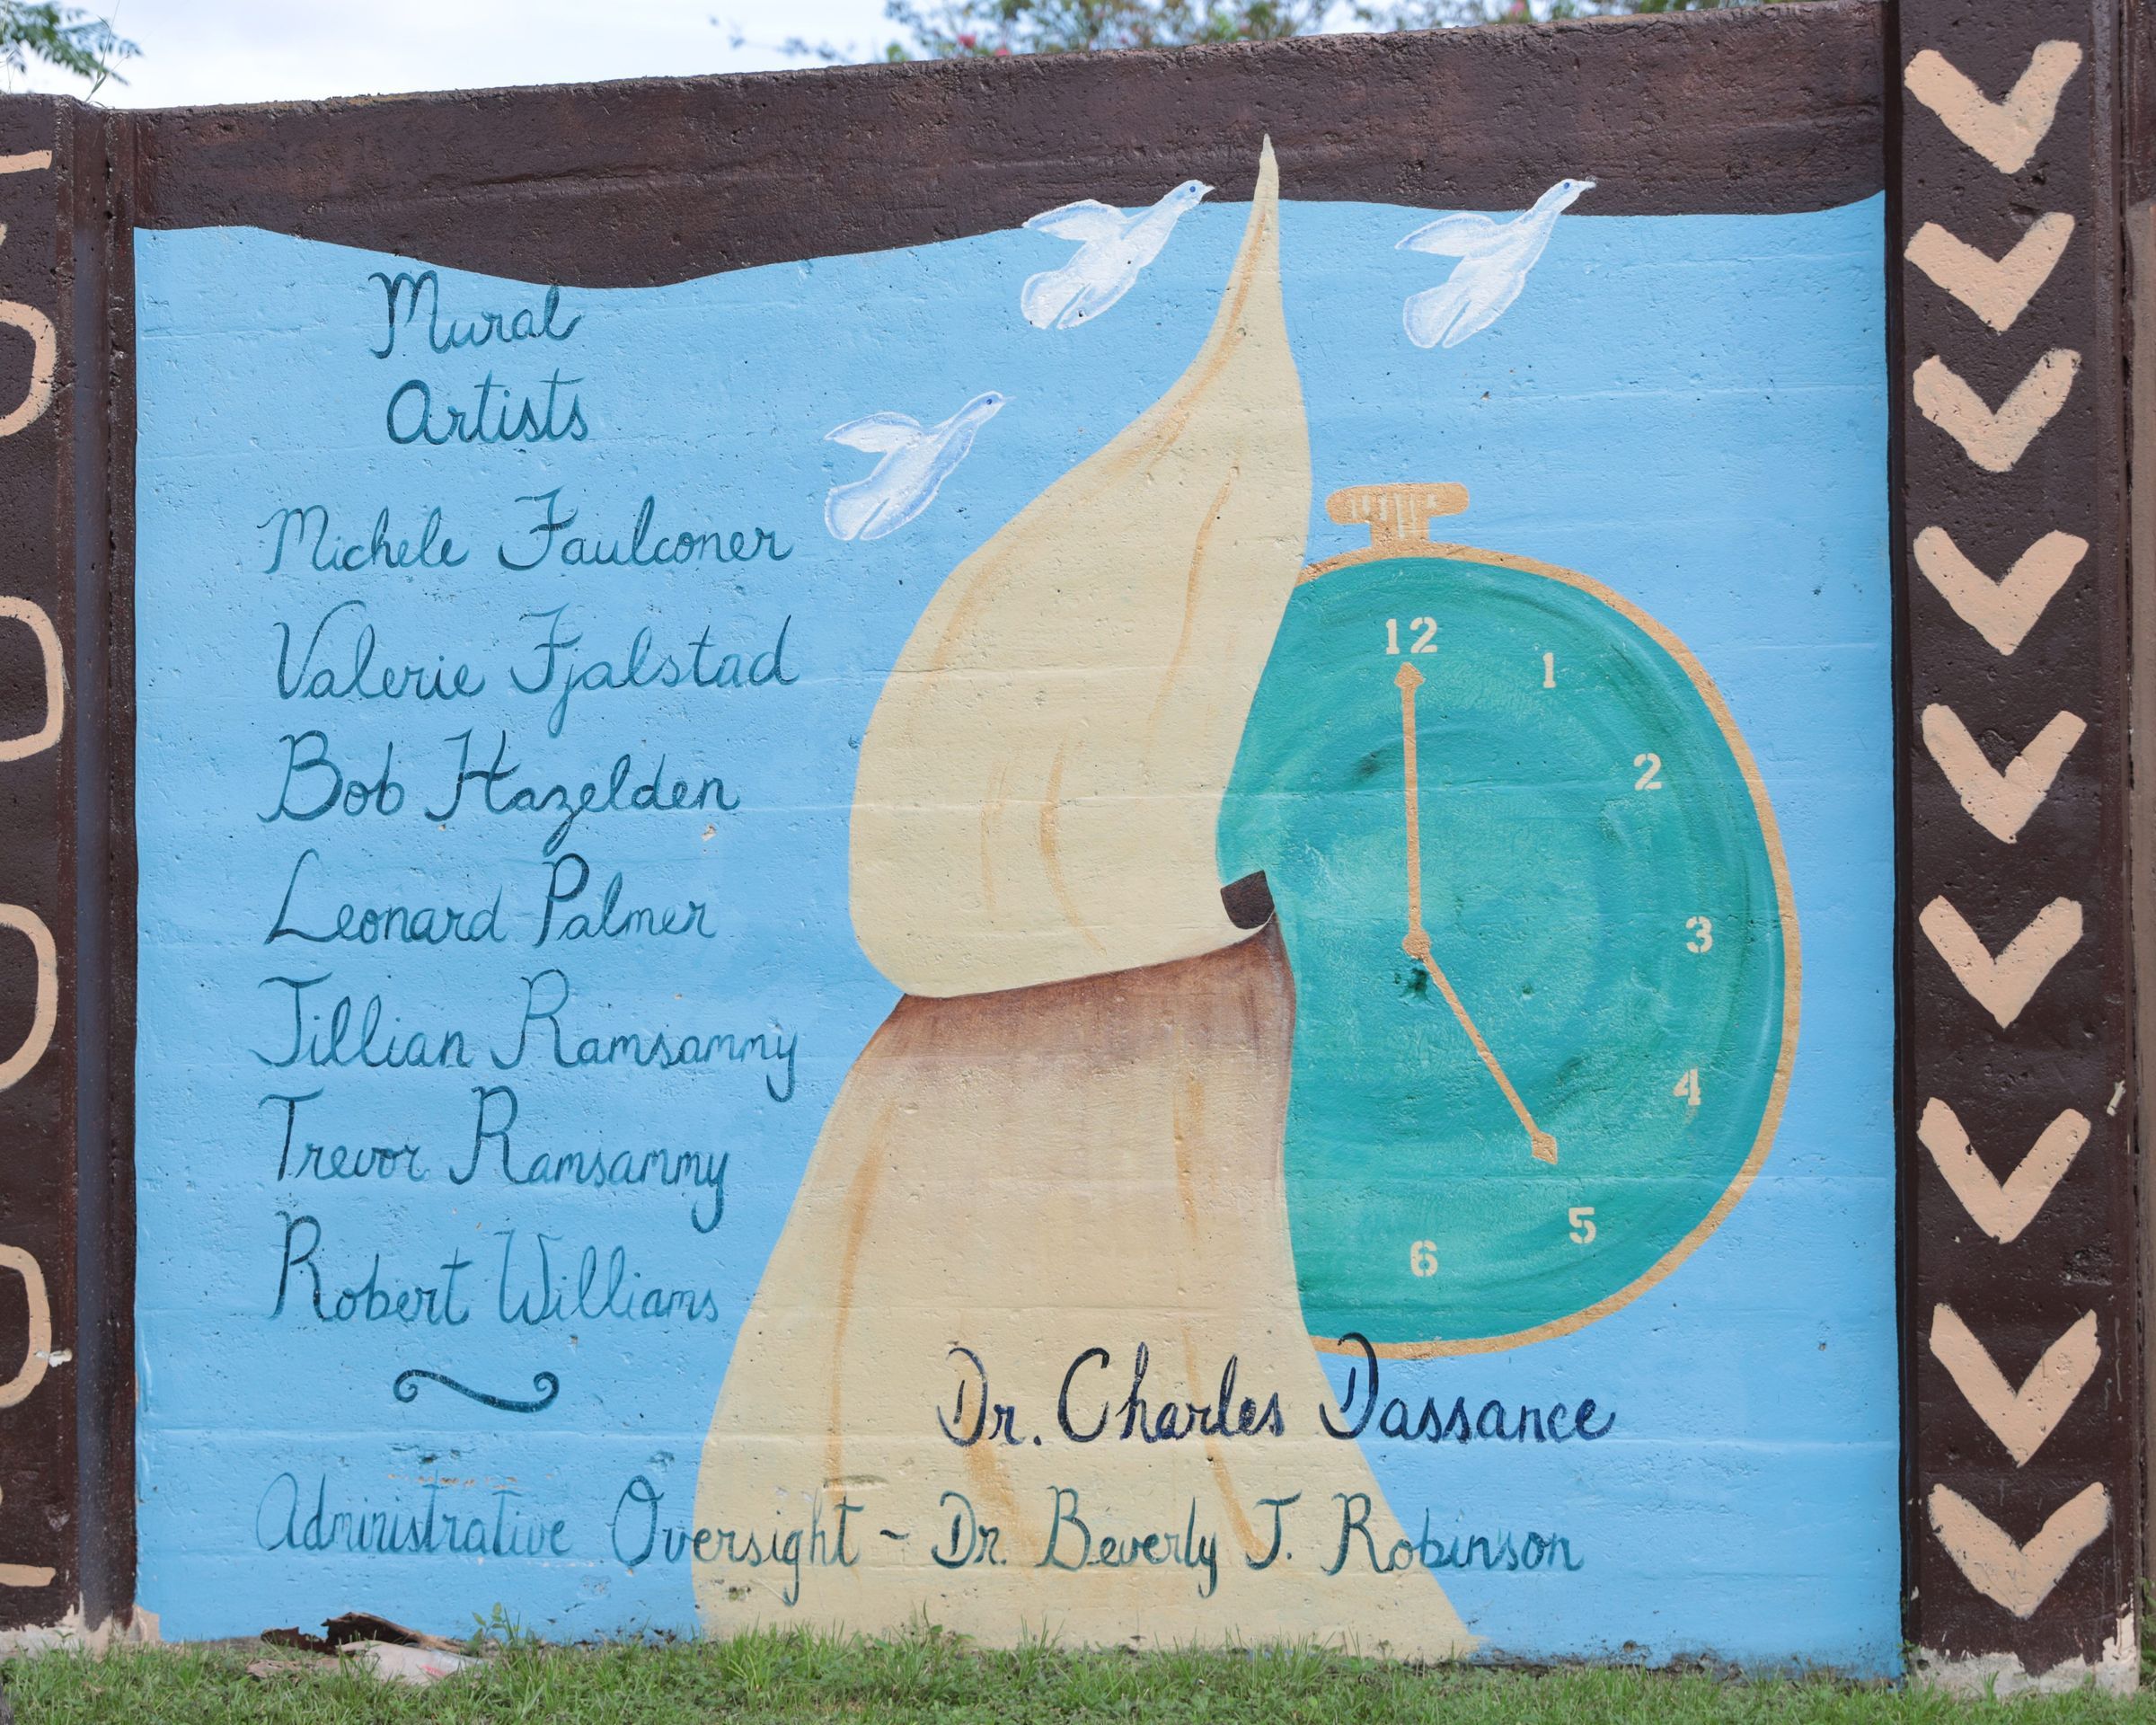 Mural
Artists
Michele Faulconer
Valerie Fjalstad
Bob Hazelden
Leonard Palmer
Jillian Ramsammy
Trevor Ramsammy
Robert Williams
12
1
2
3
4
5
6
Dr. Charles Dassance
Administrative Oversight ~ Dr. Beverly J. Robinson